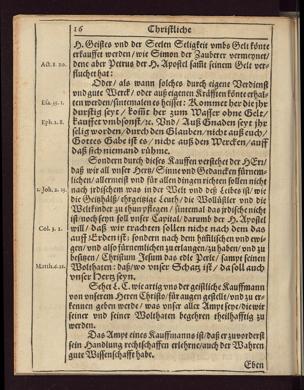 16 Christliche
H. Geistes vnd der Seelen Seligkeit vmbs Gelt könte
erkauffet werden / wie Simon der Zauberer vermeynet /
Act. 8. 20. dene aber Petrus der H. Apostel samt seinem Gelt ver-
fluchet hat:
Oder / als wann solches durch eigene Verdienst
vnd gute Werck / oder auß eigenen Kräfften könte erhal-
ten werden / sintemalen es heisset: Kommet her die ihr
Esa. 55. 1. durstig seyt / kommt her zum Wasser ohne Gelt /
kauffet vmbsonst / ec. Vnd / Auß Gnaden seyt ihr
Eph. 2. 8. selig worden / durch den Glauben / nicht auß euch /
Gottes Gabe ist es / nicht auß den Wercken / auff
daß sich niemand rühme.
Sondern durch dieses Kauffen verstehet der HErr /
daß wir all vnser Hertz / Sinne vnd Gedancken fürnem-
lich / allermeist vnd für allen dingen richten sollen nicht
1. Joh. 2. 15. nach irdischem was in der Welt vnd deß Leibes ist / wie
die Geitzhälß / ehrgeitzige Leuth / die Wollüstler vnd die
Weltkinder zu thun pflegen / sintemal das vnsche nicht
ist / noch seyn soll vnser Capital / darumb der H. Apostel
Col. 3. 1. will / daß wir trachten sollen nicht nach dem das
auff Erden ist; sondern nach dem himlischen vnd ewi-
gen / vnd also fürnemlich zu erlangen / zu haben / vnd zu
besitzen / Christum Jesum das edle Perle / sampt seinen
Matth. 6. 21. Wolthaten: daß / wo vnser Schatz ist / da soll auch
vnser Hertz seyn.
Sehet L. C. wie artig vns der geistliche Kauffmann
von vnserem Herren Christo / für augen gestellt / vnd zu er-
kennen geben werde / was vnser aller Ampt seye / die wir
seiner vnd seiner Wolthaten begehren theilhafftig zu
werden.
Das Ampt eines Kauffmanns ist / daß er zuvorderst
sein Handlung rechtschaffen erlehrne / auch der Wahren
gute Wissenschafft habe.
Eben